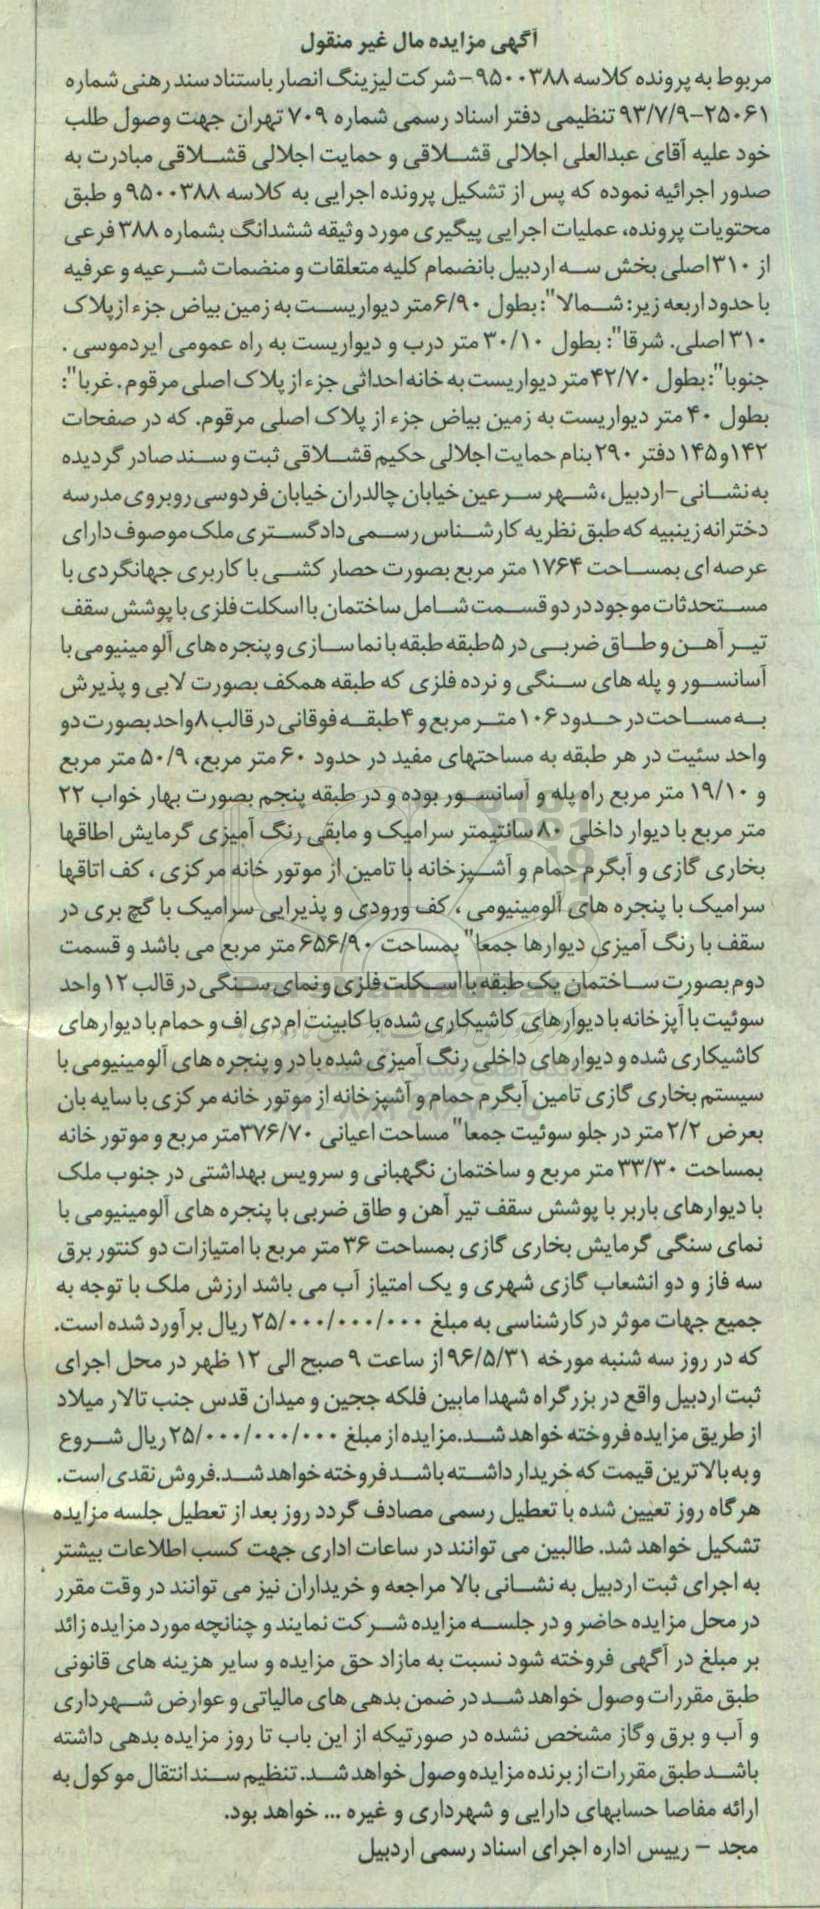 آگهی مزایده مال غیر منقول
مربوط به پرونده کلاسه ۹۵۰۰۳۸۸-شرکت لیزینگ انصار باستناد سند رهنی شماره
۲۵۰۶۱-۹۳/۷/۹ تنظیمی دفتر اسناد رسمی شماره ۷۰۹ تهران جهت وصول طلب
خود علیه آقای عبدالعلی اجلالی قشلاقی و حمایت اجلالی قشلاقی مبادرت به
صدور اجرائیه نموده که پس از تشکیل پرونده اجرایی به کلاسه ۹۵۰۰۳۸۸ و طبق
محتویات پرونده، عملیات اجرایی پیگیری مورد وثیقه ششدانگ بشماره ۳۸۸ فرعی
از ۳۱۰اصلی بخش سه اردبیل بانضمام کلیه متعلقات و منضمات شرعیه و عرفیه
با حدود اربعه زیر: شمالا": بطول ۶/۹۰متر دیواریست به زمین بیاض جزء ازپلاک
۳۱۰ اصلی. شرقا": بطول ۳۰/۱۰ متر درب و دیواریست به راه عمومی ایردموسی .
جنوبا": بطول ۴۲/۷۰ متر دیواریست به خانه احداثی جزء از پلاک اصلی مرقوم. غربا":
بطول ۴۰ متر دیواریست به زمین بیاض جزء از پلاک اصلی مرقوم. که در صفحات
۱۴۲و۱۴۵ دفتر ۲۹۰ بنام حمایت اجلالی حکیم قشلاقی ثبت و سند صادر گردیده
به نشانی-اردبیل، شهر سرعین خیابان چالدران خیابان فردوسی روبروی مدرسه
دخترانه زینبیه که طبق نظریه کارشناس رسمی دادگستری ملک موصوف دارای
عرصه ای بمساحت ۱۷۶۴ متر مربع بصورت حصار کشی با کاربری جهانگردی با
مستحدثات موجود در دو قسمت شامل ساختمان با اسکلت فلزی با پوشش سقف
تیر آهن و طاق ضربی در ۵طبقه طبقه با نما سازی و پنجره های آلومینیومی با
آسانسور و پله های سنگی و نرده فلزی که طبقه همکف بصورت لابی و پذیرش
به مساحت در حدود ۱۰۶ متر مربع و ۴طبقه فوقانی در قالب ۸واحد بصورت دو
واحد سئیت در هر طبقه به مساحتهای مفید در حدود ۶۰ متر مربع، ۵۰/۹ متر مربع
و ۱۹/۱۰ متر مربع راه پله و آسانسور بوده و در طبقه پنجم بصورت بهار خواب ۲۲
متر مربع با دیوار داخلی ۸۰ سانتیمتر سرامیک و مابقی رنگ آمیزی گرمایش اطاقها
بخاری گازی و آبگرم حمام و آشپزخانه با تامین از موتور خانه مرکزی ، کف اتاقها
سرامیک با پنجره های آلومینیومی ، کف ورودی و پذیرایی سرامیک با گچ بری در
سقف با رنگ آمیزی دیوارها جمعا" بمساحت ۶۵۶/۹۰ متر مربع می باشد و قسمت
دوم بصورت ساختمان یک طبقه با اسکلت فلزی و نمای سنگی در قالب ۱۲ واحد
سوئیت با آپزخانه با دیوارهای کاشیکاری شده با کابینت ام دی اف و حمام با دیوارهای
کاشیکاری شده و دیوارهای داخلی رنگ آمیزی شده با در و پنجره های آلومینیومی با
سیستم بخاری گازی تامین آبگرم حمام و آشپزخانه از موتور خانه مرکزی با سایه بان
بعرض ۲/۲ متر در جلو سوئیت جمعا" مساحت اعیانی ۳۷۶/۷۰متر مربع و موتور خانه
بمساحت ۳۳/۳۰ متر مربع و ساختمان نگهبانی و سرویس بهداشتی در جنوب ملک
با دیوارهای باربر با پوشش سقف تیر آهن و طاق ضربی با پنجره های آلومینیومی با
نمای سنگی گرمایش بخاری گازی بمساحت ۳۶ متر مربع با امتیازات دو کنتور برق
سه فاز و دو انشعاب گازی شهری و یک امتیاز آب می باشد ارزش ملک با توجه به
جمیع جهات موثر در کارشناسی به مبلغ ۲۵/۰۰۰/۰۰۰/۰۰۰ ریال برآورد شده است.
که در روز سه شنبه مورخه ۹۶/۵/۳۱ از ساعت ۹ صبح الی ۱۲ ظهر در محل اجرای
ثبت اردبیل واقع در بزرگراه شهدا مابین فلکه ججین و میدان قدس جنب تالار میلاد
از طریق مزایده فروخته خواهد شد.مزایده از مبلغ ۲۵/۰۰۰/۰۰۰/۰۰۰ریال شروع
و به بالاترین قیمت که خریدار داشته باشد فروخته خواهد شد.فروش نقدی است.
هرگاه روز تعیین شده با تعطیل رسمی مصادف گردد روز بعد از تعطیل جلسه مزایده
تشکیل خواهد شد. طالبین می توانند در ساعات اداری جهت کسب اطلاعات بیشتر
به اجرای ثبت اردبیل به نشانی بالا مراجعه و خریداران نیز می توانند در وقت مقرر
در محل مزایده حاضر و در جلسه مزایده شرکت نمایند و چنانچه مورد مزایده زائد
بر مبلغ در آگهی فروخته شود نسبت به مازاد حق مزایده و سایر هزینه های قانونی
طبق مقررات وصول خواهد شد در ضمن بدهی های مالیاتی و عوارض شهرداری
و آب و برق وگاز مشخص نشده در صورتیکه از این باب تا روز مزایده بدهی داشته
باشد طبق مقررات از برنده مزایده وصول خواهد شد. تنظیم سند انتقال موکول به
ارائه مفاصا حسابهای دارایی و شهرداری و غیره ... خواهد بود.
مجد – رییس اداره اجرای اسناد رسمی اردبیل